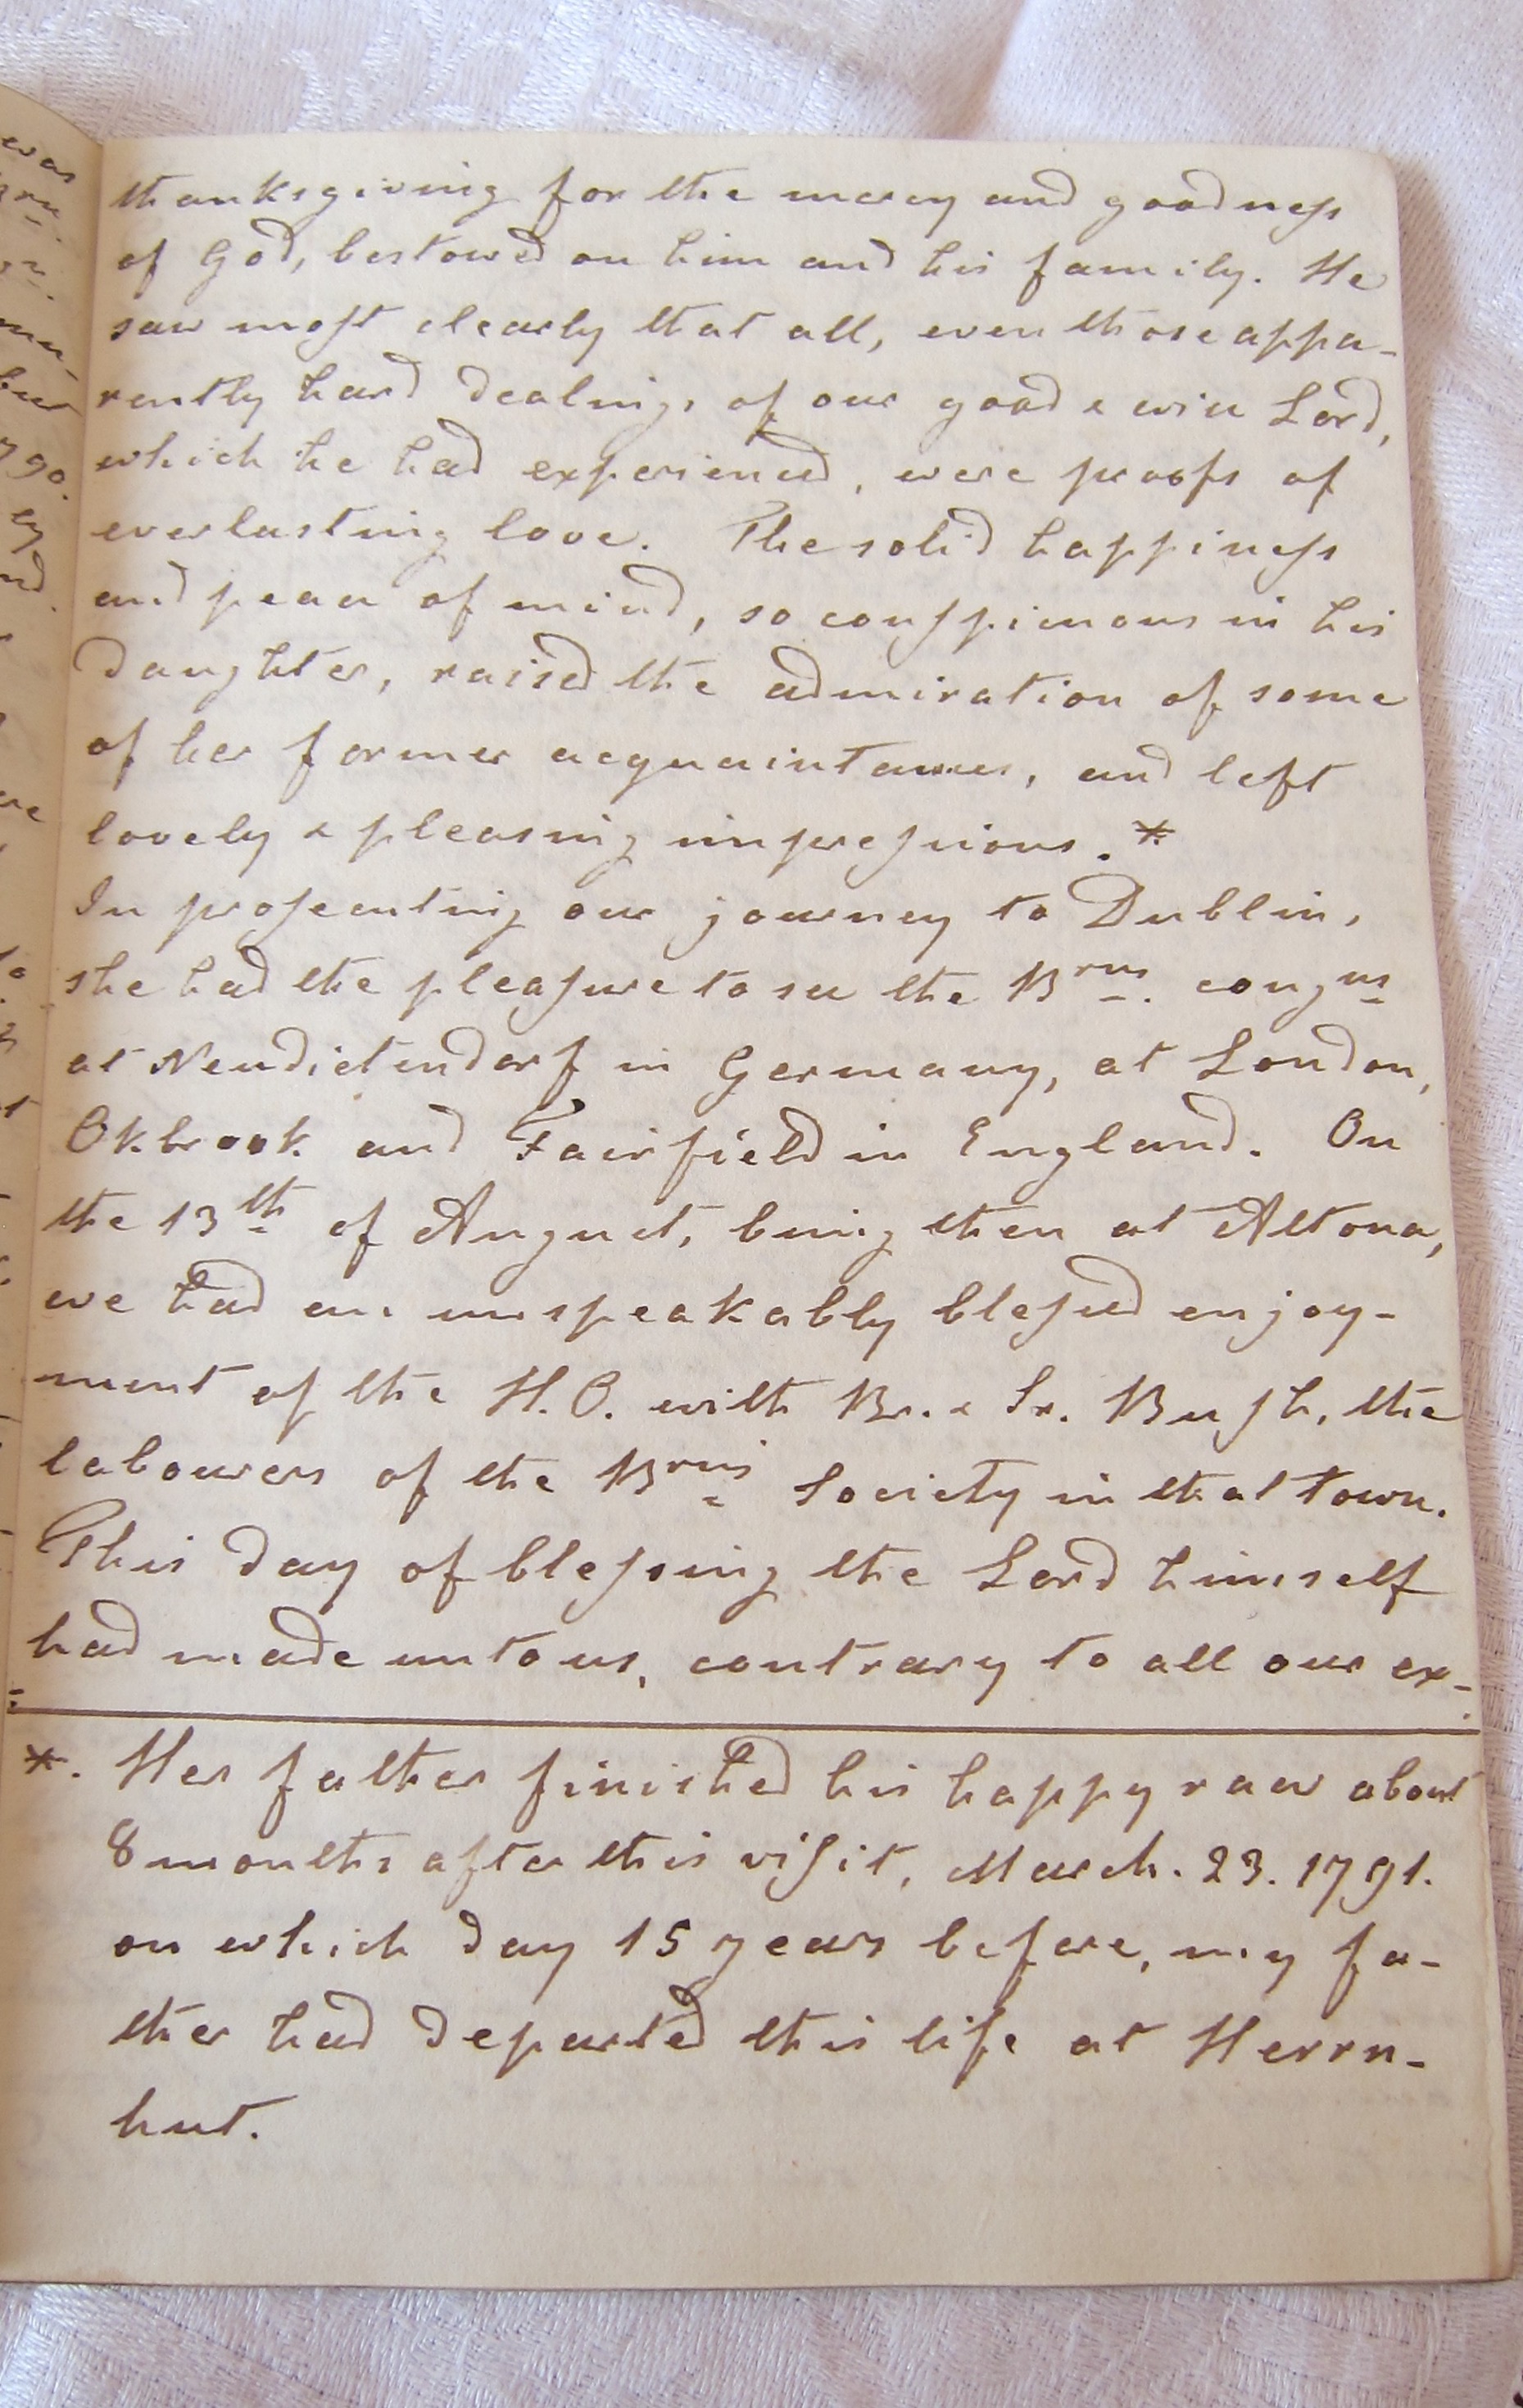 thanksgiving for the mercy and goodneſs
of God, bestowed on him and his family. He
saw moſt clearly that all, even those appa-
rently hard dealings of our good & wise Lord,
which he had experienced, were proofs of
everlasting love. The solid happineſs
and peace of mind, so conſpicuous in his
daughter, raised the admiration of some
of her former acquaintances, and left
lovely & pleasing impreſsions. *
In proſecuting our journey to Dublin,
she had the pleaſure to see the Brns. congns
at Neudietendorf in Germany, at London,
Okbrook and Fairfield in England. On
the 13th of August, being then at Altona,
we had an unspeakably bleſsed enjoy-
ment of the H. C. with Br. & Sr. Buſh, the
labourers of the Brns Society in that town.
This day of bleſsing the Lord himself
had made unto us, contrary to all our ex-
*. Her father finished his happy race about
8 months after this viſit, March. 23. 1791.
on which day 15 years before, my fa-
ther had departed this life at Herrn-
hut.
was
790.